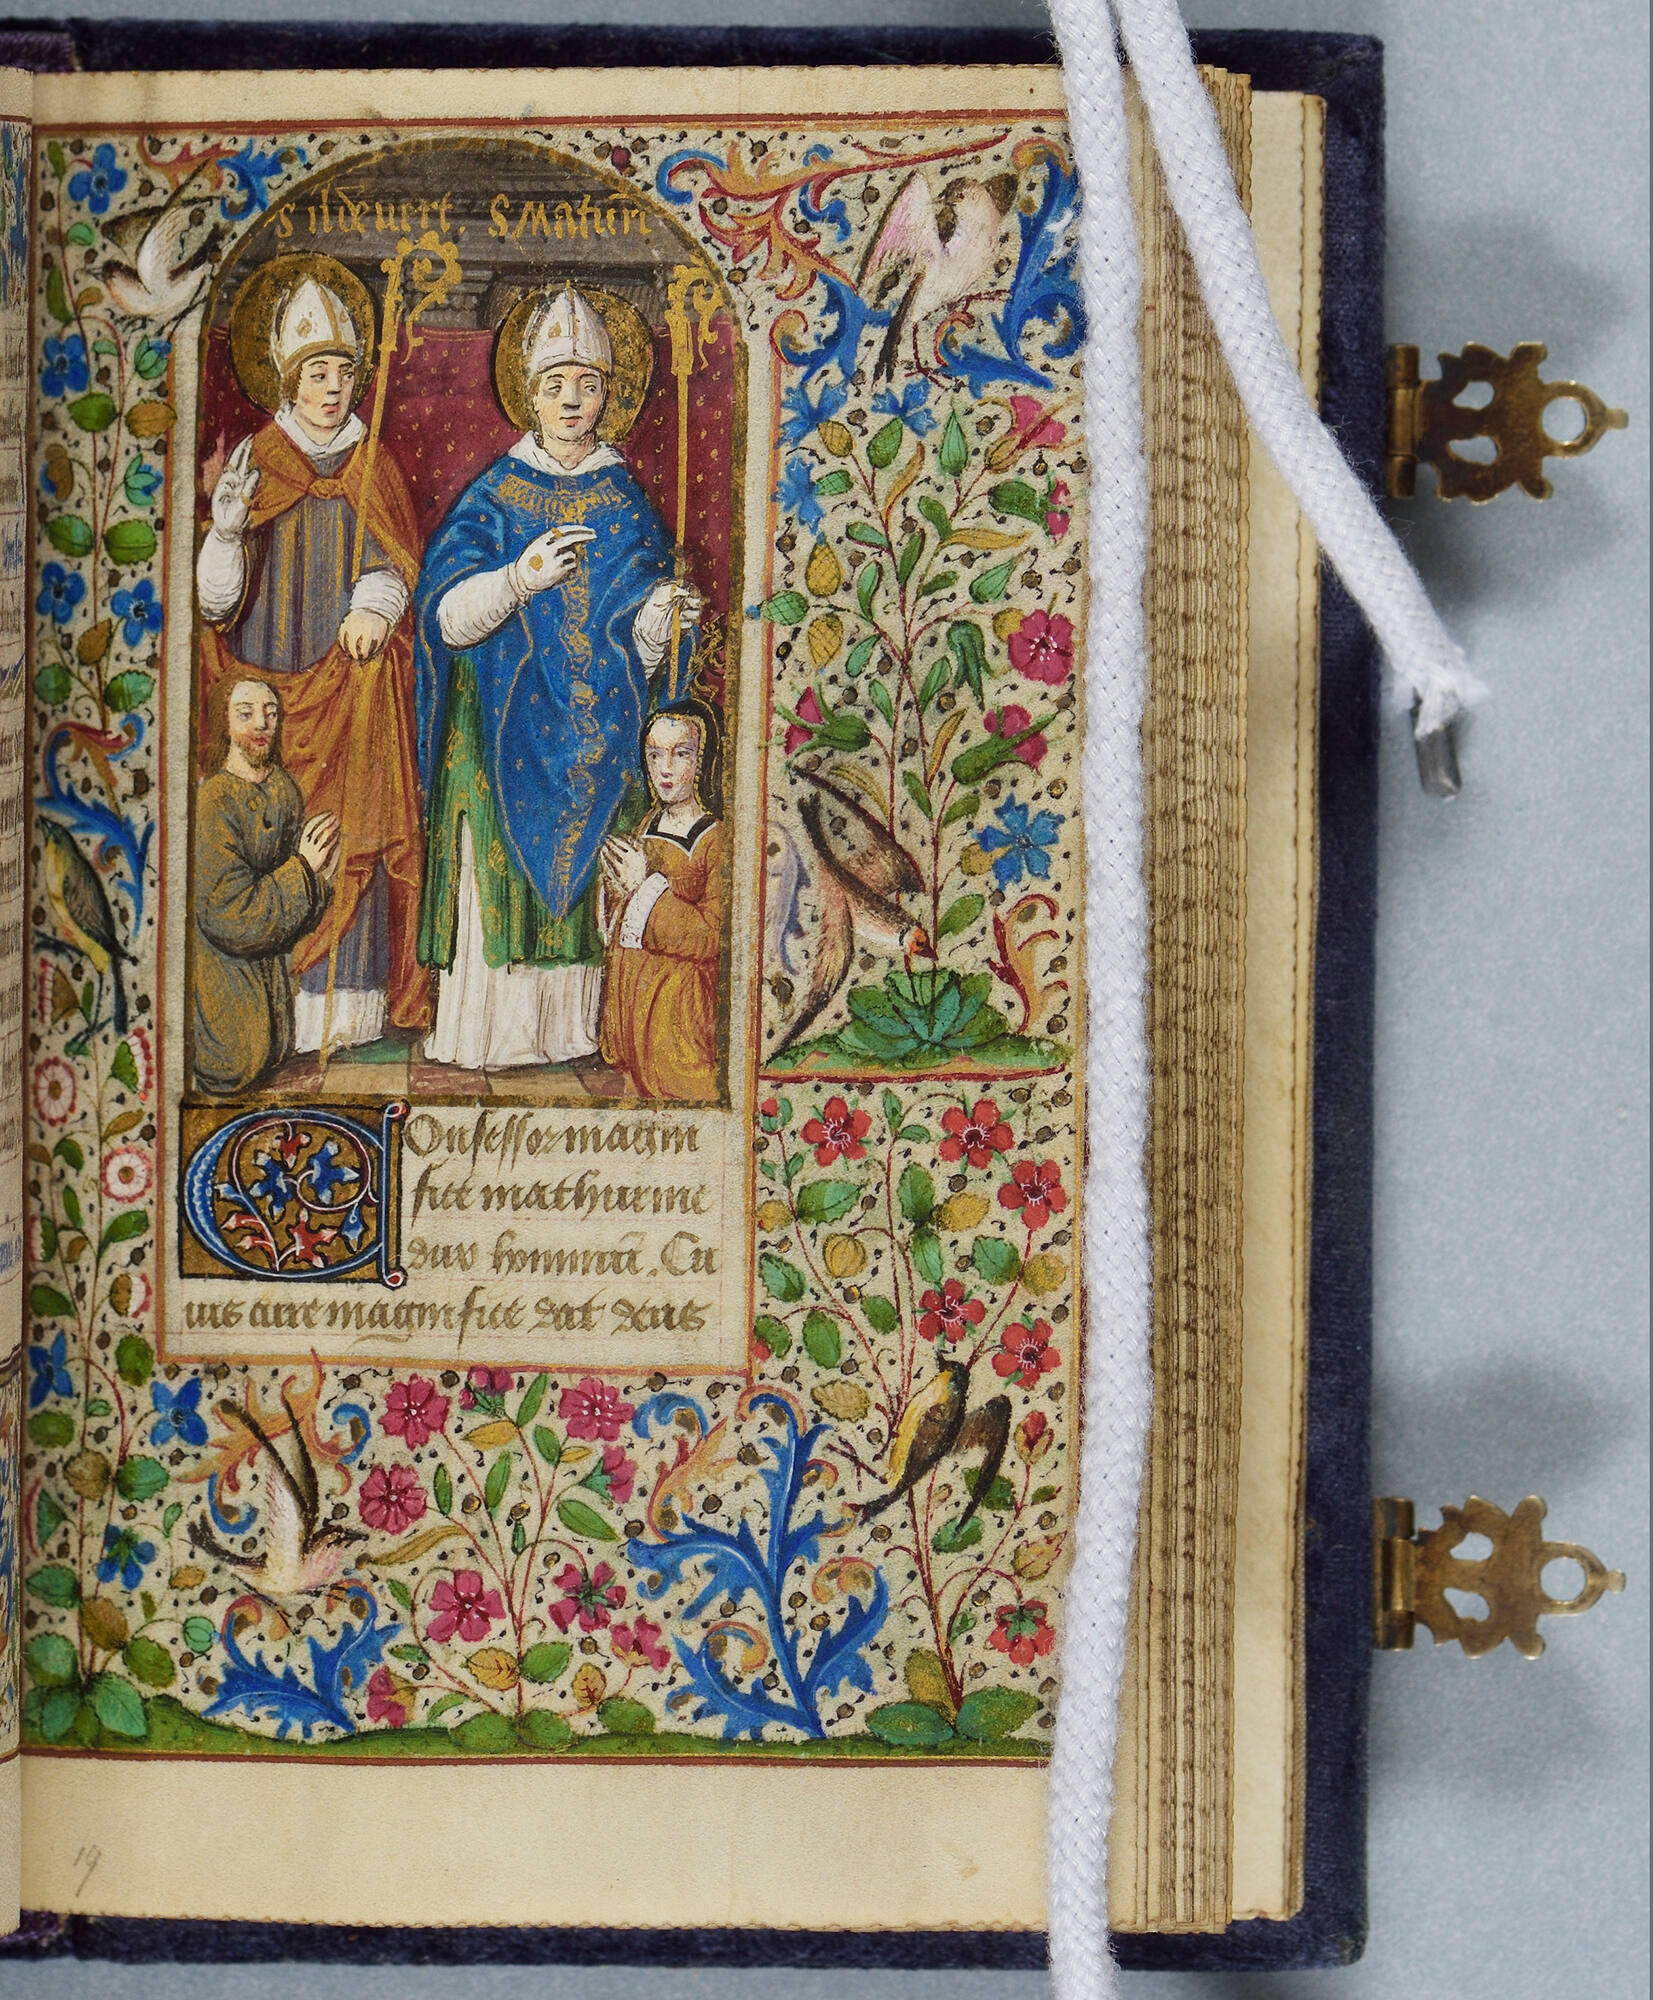 S ildeuert. S Maturī
Confessor magni
fice mathurine
dux hominū. Cu
ius aure magnifice dat deus
19